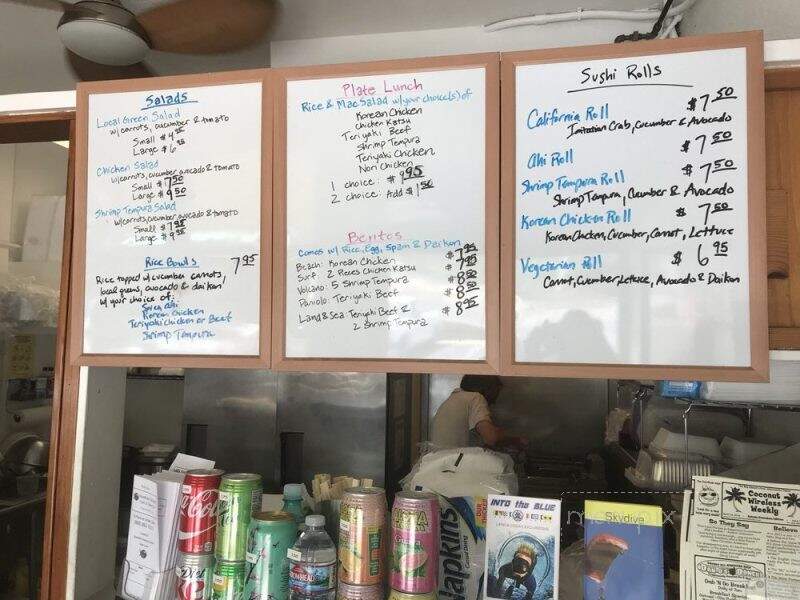 Salads
Local Green Salad
w/carrots, cucumber & tomato
Small $4 25
Large $6 25
Chicken Salad
w/carrots, cucumber, avocado & tomato
Small $7 50
Large $9 50
Shrimp Tempura Salad
w/carrots, cucumber, avocado & tomato
Small $7 95
Large $9 95
Rice Bowls 7 95
Rice topped w/cucumber carrots,
local greens, avocado & daikon,
w/your choice of:
Spicy Ahi
Korean Chicken
Teriyaki Chicken or Beef
Shrimp Tempura
Plate Lunch
Rice & Mac Salad w/your choice(s) of
Korean Chicken
Chicken Katsu
Teriyaki Beef
Shrimp Tempura
Teriyaki Chicken
Nori Chicken
1 choice: $9 95
2 choice: Add $1 50
Bentos
Comes w/ Rice, Egg, Spam & Daikon
Beach: Korean Chicken $7 95
Surf: 2 Pieces Chicken Katsu $7 95
Volcano: 5 Shrimp Tempura $8 50
Paniolo: Teriyaki Beef $8 50
Land & Sea: Teriyaki Beef & $8 95
2 Shrimp Tempura
Sushi Rolls
California Roll $7 50
Imitation Crab, Cucumber & Avocado
Ahi Roll $7 50
Shrimp Tempura Roll $7 50
Shrimp Tempura, Cucumber & Avocado
Korean Chicken Roll $7 50
Korean Chicken, Cucumber, Carrot, Lettuce
Vegetarian Roll $6 95
Carrot, Cucumber, Lettuce, Avocado & Daikon
Coca-Cola
Diet
Napkins
INTO the BLUE
Skydive
Coconut
Wireless
Weekly
So They Say
Grab 'N Go Break!